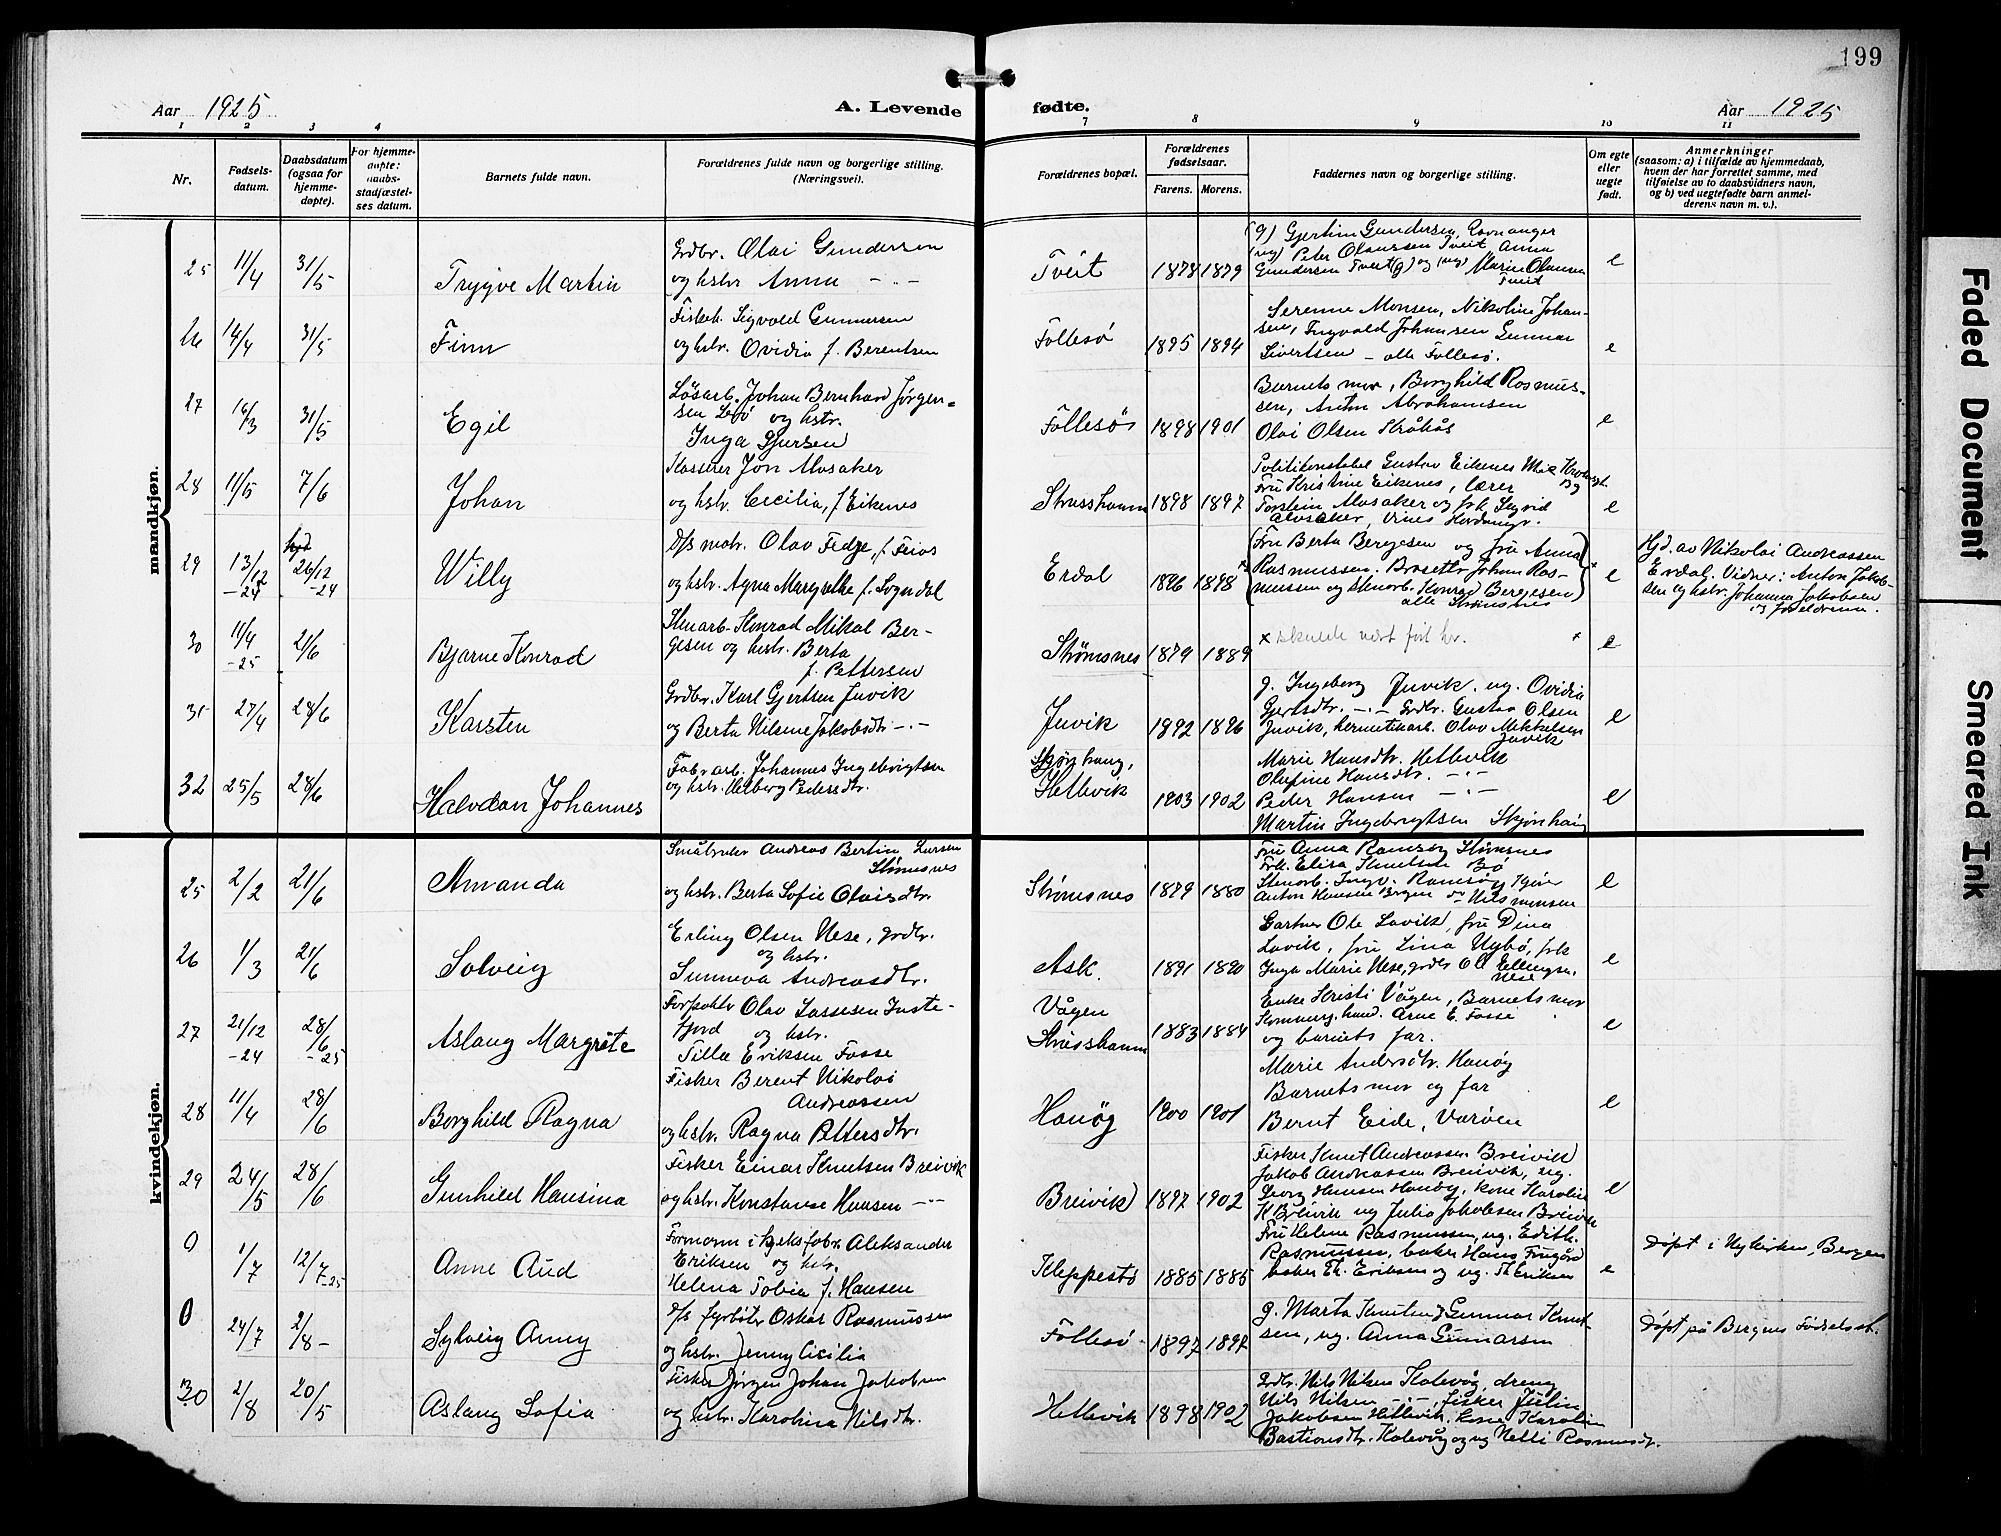 199
Aar 1925
A. Levende fødte.
Aar 1925
1 2 3 4 7 8 9 10 11
Nr.
Fødsels-
datum.
Daabsdatum
(ogsaa for
hjemme-
døpte).
For hjemme-
døpte:
daabs-
stadfæstel-
ses datum.
Barnets fulde navn.
Forældrenes fulde navn og borgerlige stilling.
(Næringsvei).
Forældrenes bopæl.
Forældrenes
fødselsaar.
Farens. Morens.
Faddernes navn og borgerlige stilling.
Om egte
eller
uegte
født.
Anmerkninger
(saasom: a) i tilfælde av hjemmedaab,
hvem der har forrettet samme, med
tilføielse av to daabsvidners navn,
og b) ved uegtefødte barn anmel-
derens navn m. v.).
mandkjøn.
25 11/4 31/5 Trygve Martin
Grdbr. Olai Gundersen
og hstr Anna -"-
Tveit 1878 1879
(g) Gjertine Gundersen, Ravnanger
(ug) Peter Olaussen Tveit Anna
Gundersen Tveit (g) og (ug) Marie Olaussen
Tveit
e
26 14/4 31/5 Finn
Fisk. Sigvald Gunnarsen
og hstr. Ovidia f. Berentsen
Follesø 1895 1894
Serenne Monsen, Nikoline Johan-
sen, Ingvald Johansen Gunnar
Sivertsen - alle Follesø.
e
27 16/3 31/5 Egil
Løsarb. Johan Bernhard Jørgen-
sen og hstr.
Inga Gjersen
Follesø 1898 1901
Barnets mor, Borghild Rasmus-
sen, Anton Abrahamsen
Olai Olsen Stråkås
e
28 11/5 7/6 Johan
Kasserer Jon Alvsaker
og hstr. Cecilia, f. Eikenes
Strusshamn 1898 1897
Politikonstabel Gustav Eikenes
Fru Kristine Eikenes, lærer
Torstein Alvsaker og frk Sigrid
Alvsaker, Vines Hardanger.
e
29 13/12 -24 hjd 26/12 -24 Willy
D/s matr. Olav Fedje, f. Feios
og hstr. Agna Margrethe f. Sogndal
Erdal 1896 1898
(Fru Berta Bergesen og fru Anna
Rasmussen. Johan Ras-
mussen og stenarb. Konrad Bergesen)
alle Strømsnes
e
Hjd. av Nikolai Andreassen
Erdal. Vidner: Anton Jakob-
sen og hstr. Johanna Jakobsen
og foreldrene.
30 11/4 -25 21/6 Bjarne Konrad
Stenarb. Konrad Mikal Ber-
gesen og hstr. Berta
f. Pettersen
Strømsnes 1879 1889
x skulde vært ført her. x
e
31 27/4 28/6 Karsten
Grdbr. Karl Gjertsen Juvik
og Berta Nilsine Jakobsdtr -"-
Juvik 1892 1896
g. Ingeborg Juvik. ug. Ovidia
Gjertsdtr. -"- Grdbr. Gustav Olsen
Juvik, hermetikarb. Olav Mikkelsen
Juvik
e
32 25/5 28/6 Halvdan Johannes
Fabr.arb. Johannes Ingebrigtsen
og hstr. Valborg Pedersdtr.
Skjønhaug,
Hetlevik 1903 1902
Marie Hansdtr. Hetlevik
Olefine Hansdtr. -"-
Peder Hansen -"-
Martin Ingebrigtsen Skjønhaug
e
kvindekjøn.
25 2/2 21/6 Amanda
Småbruker Andreas Bertin Larsen
Strømsnes
og hstr. Berta Sofie Olaisdtr.
Strømsnes 1879 1880
Fru Anna Ramsøy Strømsnes
Frk. Elisa Knutsen Bø
Stenarb. Ingv. Ramsøy
Anton Hansen Bergen Nils monsen
e
26 1/3 21/6 Solveig
Erling Olsen Nese, grdbr.
og hstr.
Sunneva Andreasdtr.
Ask. 1891 1890
Gartner Ole Lavik, fru Dina
Lavik, fru Lina Nybø, frk
Inga Marie Nese, grdbr Ol Ellingsen.
Nese
e
27 21/12 -24 28/6 -25 Aslaug Margrete
Olav Lassesen Inste-
fjord og hstr.
Tilla Eriksen Fosse
Vågen
Strusshamn 1883 1884
Enke Kristi Vågen, Barnets mor
Arne E. Fosse
og barnets far.
e
28 11/4 28/6 Borghild Ragna
Fisker Berent Nikolai
Andreassen
og hstr. Ragna Pettersdtr.
Hanøy 1900 1901
Marie Andersdtr. Hanøy
Barnets mor og far
Bernt Eide, Varøen
e
29 24/5 28/6 Gunhild Hansina
Fisker Einar Knutsen Breivik
og hstr. Konstanse Hansen -"-
Breivik 1897 1902
Fisker Knut Andreassen Breivik
Jakob Andreassen Breivik, ug.
Georg Hansen Hanøy, kone Karoline
K Breivik ug Julia Jakobsen Breivik
e
0 1/7 12/7-25 Anne Aud
Formann i kjeksfabr. Aleksander
Eriksen og hstr.
Helena Tobia f. Hansen
Kleppestø 1885 1885
Fru Helene Rasmussen, ug. Edith
Rasmussen, baker Hans Frugård
baker Th. Eriksen og ug. Th Eriksen
e
Døpt i Nykirken, Bergen
0 24/7 2/8- Sylvig Anny
D/s fyrbøter Oskar Rasmussen
og hstr. Jenny Cicilia
Follesø 1897 1897
g. Marta Knutsen, Gunnar Knut-
sen, ug. Anna Gunnarsen
Døpt på Bergens Fødselsst.
30 2/8 20/5 Aslaug Sofia
Fisker Jørgen Johan Jakobsen
og hstr. Karolina Nilsdtr.
Hetlevik 1898 1902
Grdbr. Nils Nilsen Kolevåg, dreng
Nils Nilsen -"-, fisker Julin
Jakobsen Hetlevik, kone Karolin
Bastiansdtr. Kolevåg og ug Netti Rasmusdtr.
Faded Document
Smeared Ink